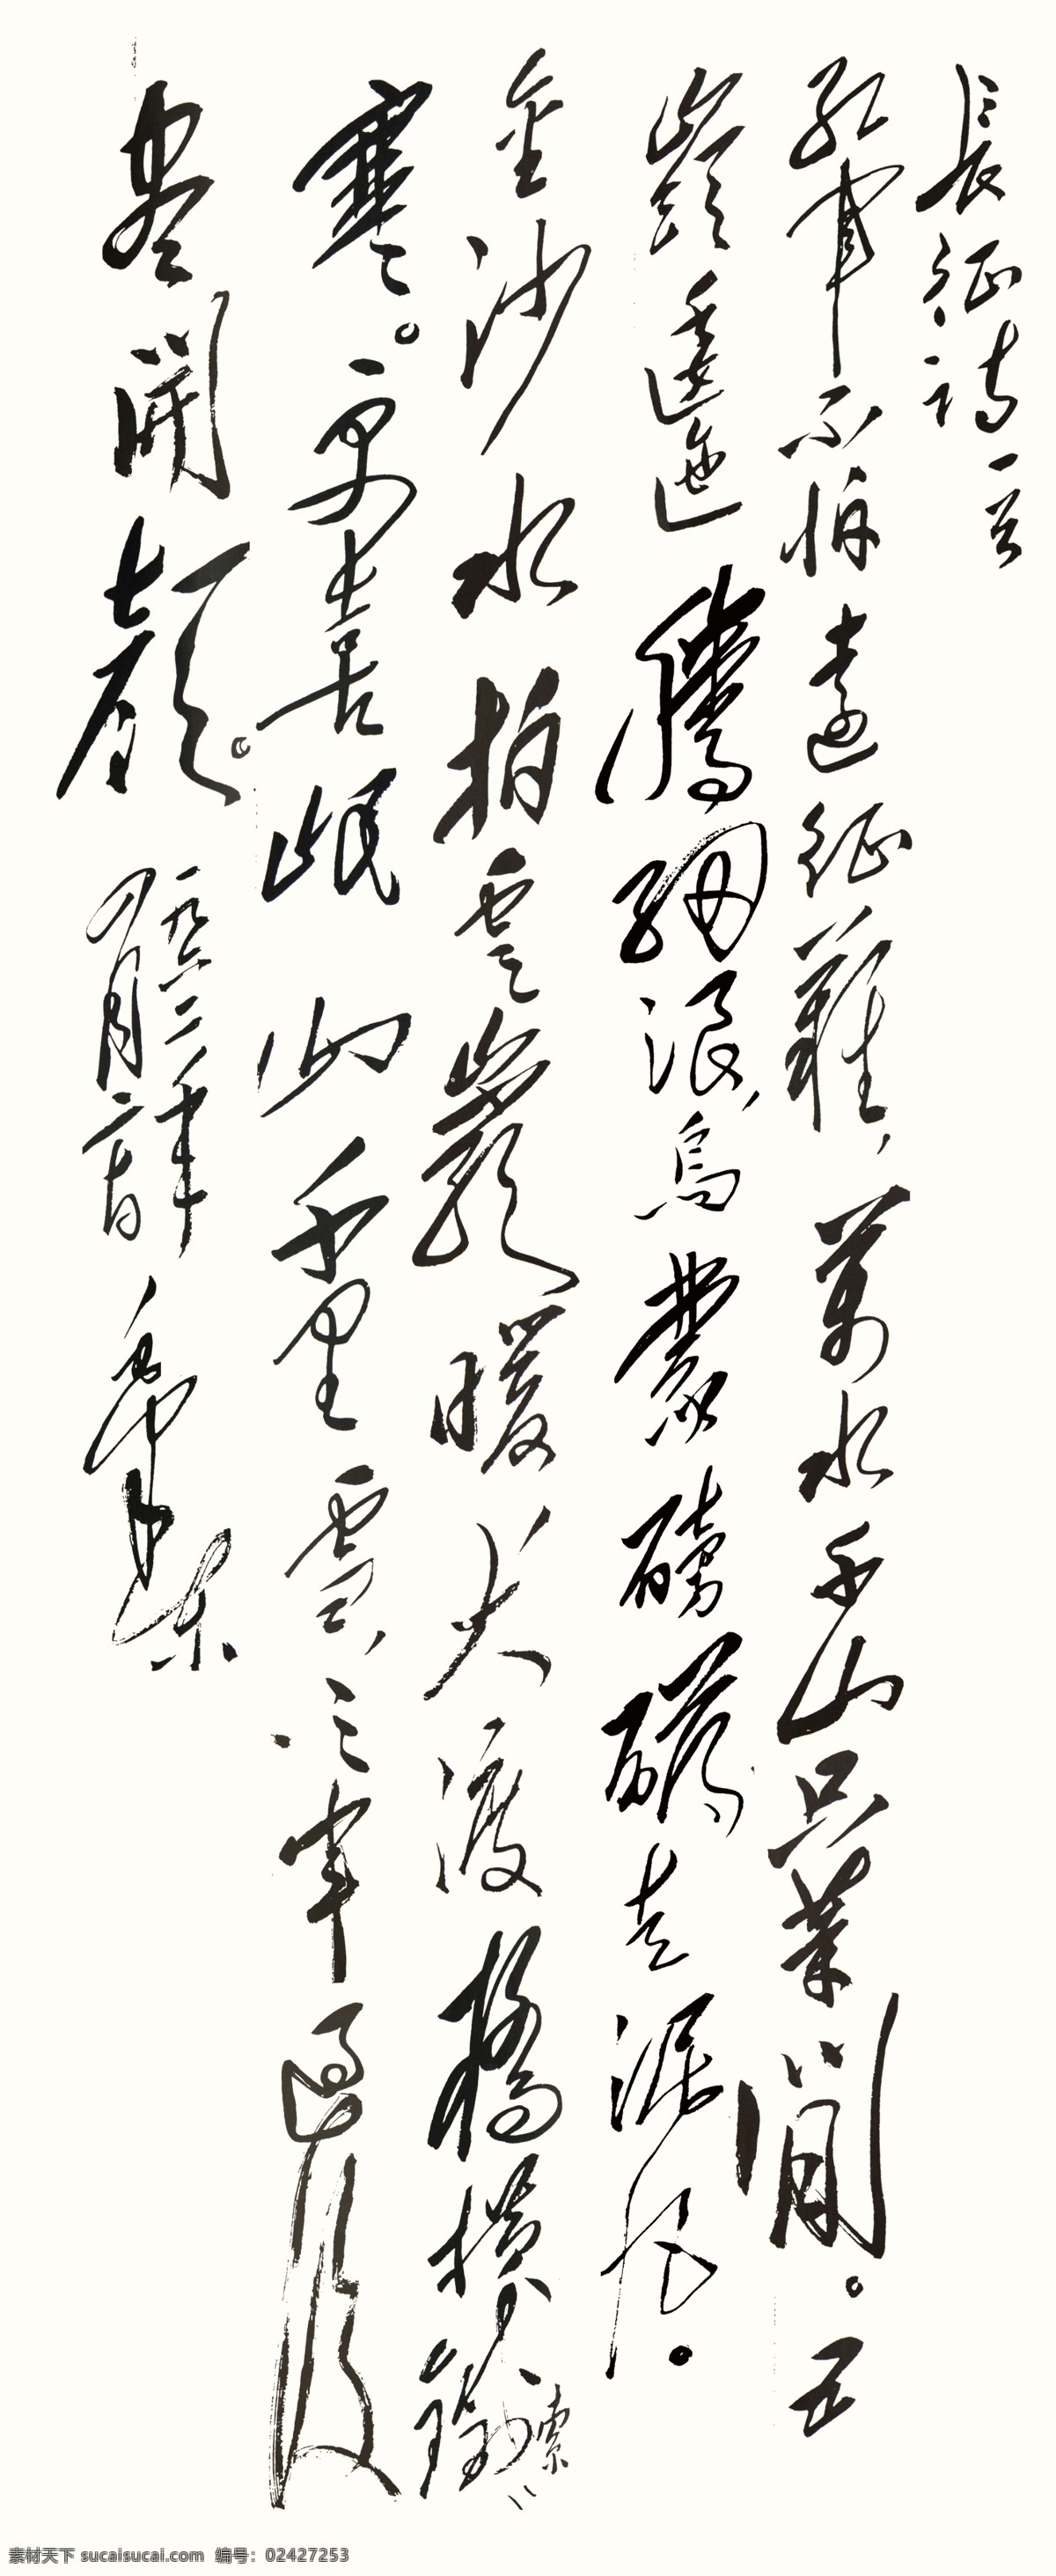 長征詩一首
紅軍不怕遠征難，萬水千山只等閒。五
嶺逶迤騰細浪，烏蒙磅礴走泥丸。
金沙水拍雲巖暖，大渡橋橫鐵索
寒。更喜岷山千里雪，三軍過後
盡開顏。
一九六二年
四月二十日
毛澤東
素材天下 sucaisucai.com 编号：02427253